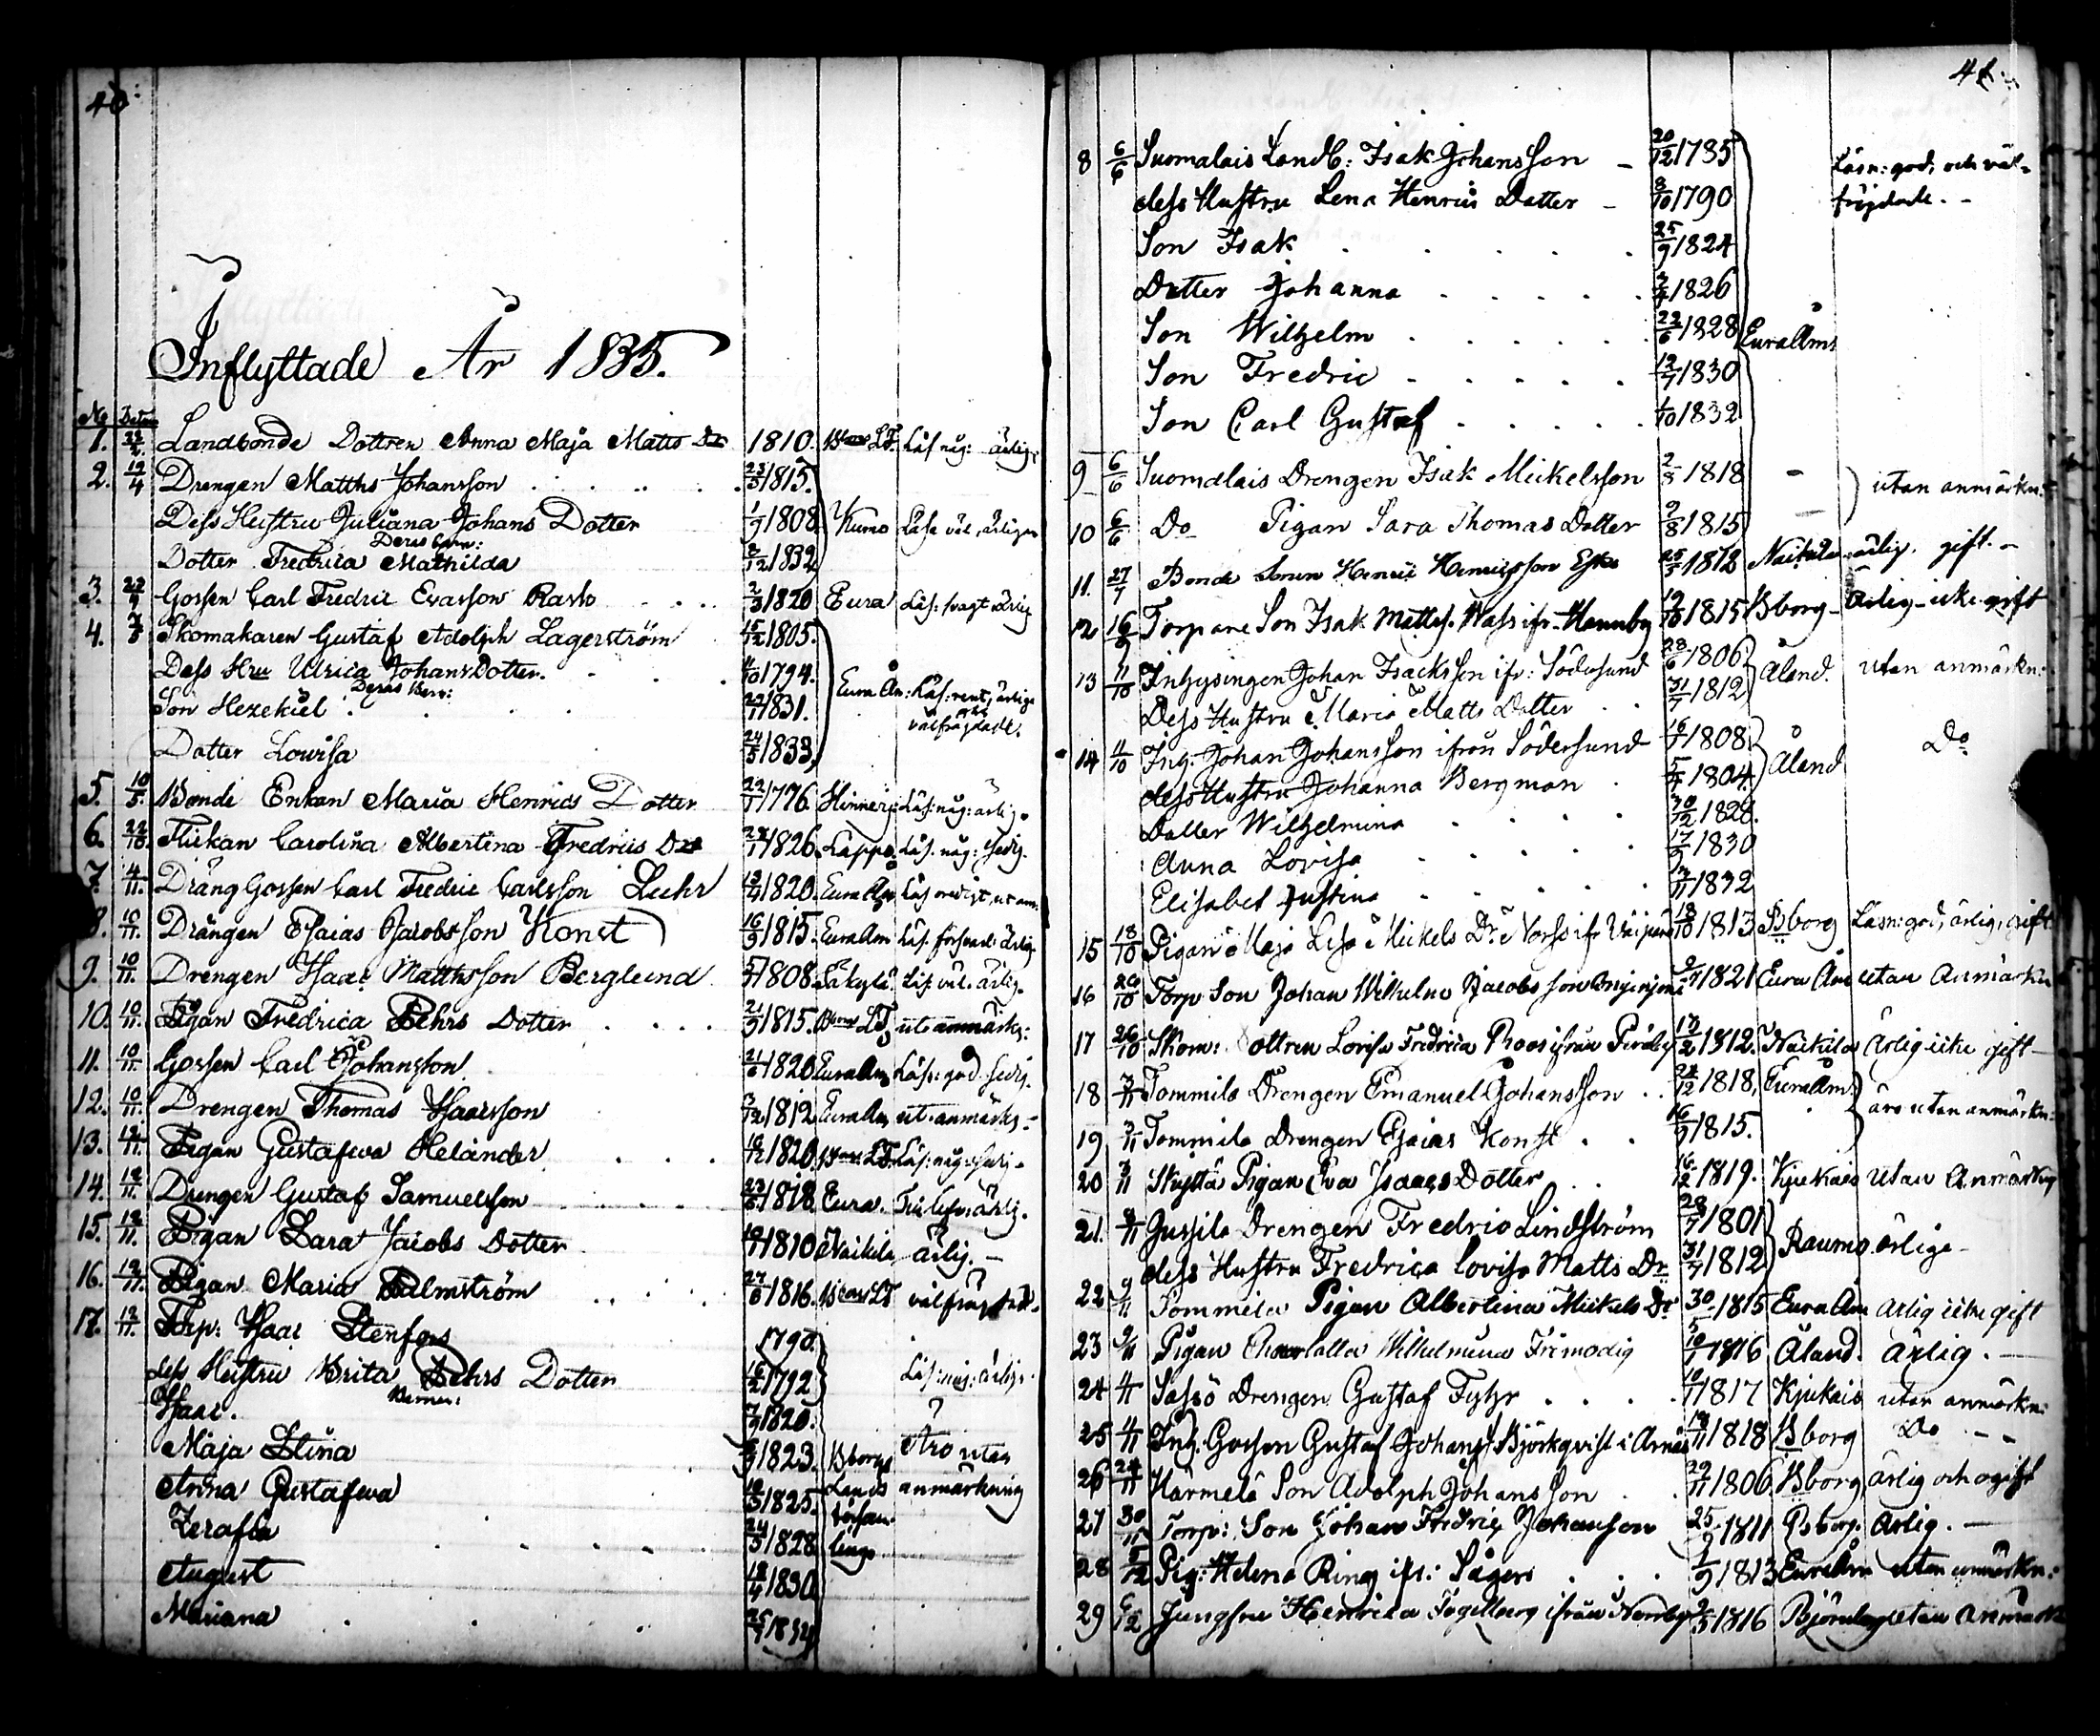 40:
Inflyttade År 1835.
No Datum
1. 22/2. Landbonde Dottren Anna Maja Matts Dr 1810. LF. Läs någ: ärlig.
2. 12/4 Drengen Matths Johansson 23/5 1815.
Dess Hustru Juliana Johans Dotter 1/9 1808. Kumo Läsa väl, ärliga
Deras barn:
Dotter Fredrica Mathilda 2/12 1832
3. Gossen Carl Fredric Evasson Rasko 2/3 1820 Eura Läs: svagt ärlig
4. Skomakaren Gustaf Adolph Lagerström 15/12 1805.
Dess Hru Ulrica Johans Dotter. 1794. Eura Åm: Läs: rent, ärliga och välfrägdade.
Deras Barn:
Son Hezekiel 1831.
Dotter Lowisa 24/5 1833
5. 10/5. Bonde Enkan Maria Henrics Dotter 22/1 1776 Hinnerj. Läs: någ: ärlig.
6. 22/10. Flickan Carolina Albertina Fredrics Dr 1826. Lappo. Läs. någ: sedig.
7. 4/11. Dräng Gossen Carl Fredric Carlsson Luhr 13/4 1820. Eura Åm Läs ut anm:
8. 10/11. Drängen Esaias Jacobsson Konst 16/9 1815. Eura Åm Läs. försvarl: ärlig.
9. 10/11. Drengen Isaac Matthsson Berglund 1808. Säkylä. Läs väl. ärlig.
10. 10/11. Pigan Fredrica Pehrs Dotter 21/9 1815. LF ut anmärkn:
11. 10/11. Gossen Carl Johansson 21/6 1820 Eura Åm Läs: god sedig.
12. 10/11. Drengen Thomas Isacsson 1812 Eura Åm ut. anmärkn:
13. 12/11. Pigan Gustafwa Helander 1820. LF. Läs: någ: sedig.
14. 12/11. Drengen Gustaf Samuelsson 1818. Eura. ärlig.
15. 12/11. Pigan Sara Jacobs Dotter 1810. Nackila ärlig.
16. 12/11. Pigan Maria Palmström 1816. LF välfrägdad.
17. 12/11. Torp: Isaac Stenfors 1790.
dess Hustru Brita Pehrs Dotter 16/2 1792 Läs: någ: ärlig.
Barnen:
Isaac. 1820.
Maja Stina 1823. Bborgs Äro utan
Anna Gustafwa 1825. Lands anmärkning
Zerafia 24/3 1828 försam-
August 12/4 1830 lings
Mariana 25/1 1832
41.
8 6/6 Suomalais Landb: Isak Johansson 20/12 1785 Läsn: god; och väl-
dess Hustru Lena Henrics Dotter 8/10 1790 frägdade.
Son Isak 25/9 1824
Dotter Johanna 1826
Son Wilhelm 22/6 1828 Eura Åms
Son Fredric 12/7 1830
Son Carl Gustaf 1/10 1832
9 6/6 Suomalais Drengen Isak Mickelsson 1818 – utan anmärkn:
10 6/6 Do Pigan Sara Thomas Dotter 9/8 1815
11. 27/7 Bonde Sonen Henric Henricsson 25/5 1812 Nackila ärlig. gift.
12 16/9 Torpare Son Isak Matths. Wass ifr. Hannby 1815 Bborg Ärlig icke gift
13 11/10 Inhysingen Johan Isacksson ifr: Södersund 28/6 1806 Åland. utan anmärkn:
Dess Hustru Maria Matts Dotter 31/7 1812
14 11/10 Inh: Johan Johansson ifrån Södersund 16/7 1808 Åland Do
dess Hustru Johanna Bergman 1804.
Dotter Wilhelmina 30/12 1828.
Anna Lovisa 17/9 1830
Elisabet Justina 1832
15 18/10 Pigan Maja Lisa Mickels Dr. Norss ifr 1813 Bborg Läsn: god, ärlig, gift
16 20/10 Torp Son Johan Wilhelm Jacobsson 1821 Eura Åm utan Anmärkn
17 26/10 Skom: Dottren Lovisa Fredrica Roos ifrån Peräby 1812. Nackila Ärlig icke gift
18 3/11 Tommila Drengen Emanuel Johansson 24/12 1818, Eura Åm äro utan anmärkn:
19 3/11 Tommila Drengen Esaias Konst 16/9 1815.
20 3/11 Skyttä Pigan Eva Isaacs Dotter 16/12 1819. Kjukais Utan Anmärkn
21. Drengen Fredric Lindström 1801 Raumo ärliga
dess Hustru Fredrica Lovisa Matts Dr 31/7 1812
22 9/11 Tommila Pigan Albertina Mickels Dr 30/5 1815 Eura Åm Ärlig icke gift
23 9/11 Pigan Charlotta Wilhelmina Frimodig 1816 Åland. Ärlig.
24 Sassö Drengen Gustaf 1817 Kjukais utan anmärkn:
25 Inh. Gossen Gustaf Johanss. Björkqvist i Arnäs 1818 Bborg Do
26 24/11 Härmelä Son Adolph Johansson 29/11 1806 Bborg ärlig och ogift
27 30/11 Torp: Son Johan Fredric Johansson 1811 Bborg. Ärlig.
28 Pig: Helena Ring ifr: Sägeri 1/9 1813 Eura Åm utan anmärkn:
29 6/12 Jungfru Henrica Fogelberg ifrån 1816 Björneborg utan Anmärk